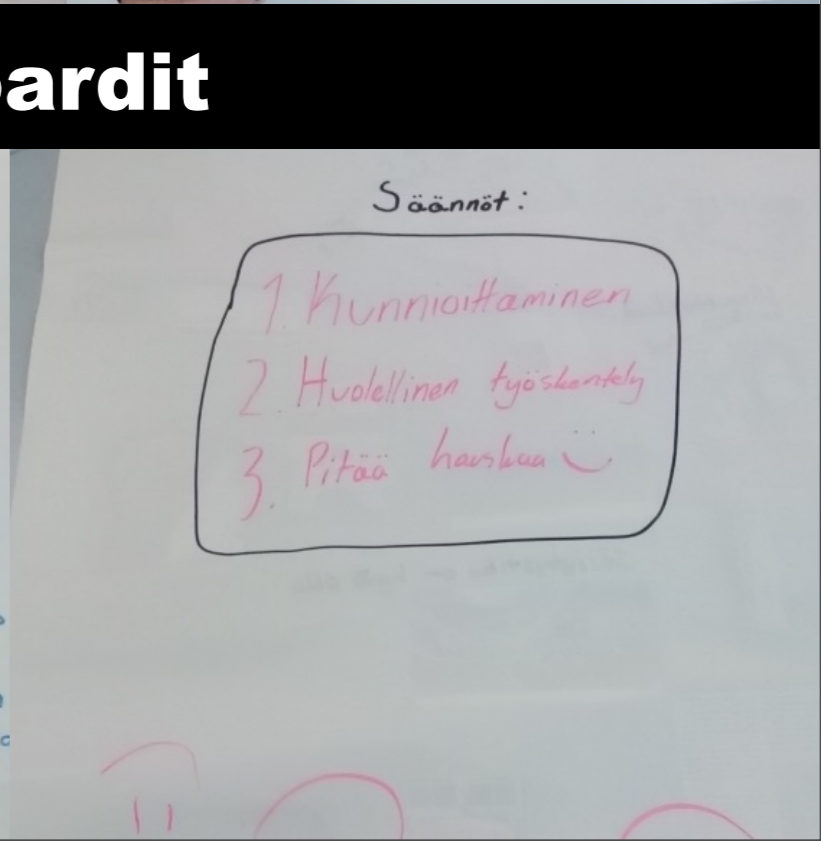 ardit
Säännöt:
1. Kunnioittaminen
2. Huolellinen työskentely
3. Pitää hauskaa